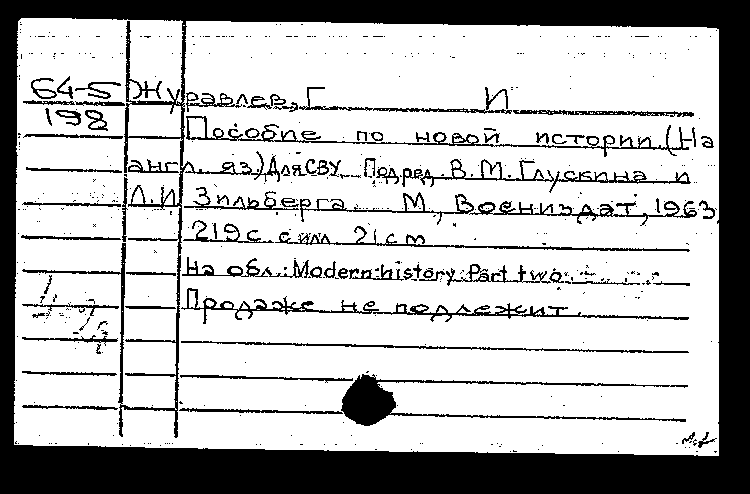 64-5 Журавлев, Г И
198 Пособие по новой истории (На
англ. яз.) Для СВУ Под ред. В.М. Глускина и
Л.И Зильберга М., Воениздат, 1963,
219 с. с илл. 21 cm
На обл.: Modern history. Part two
Продаже не подлежит.